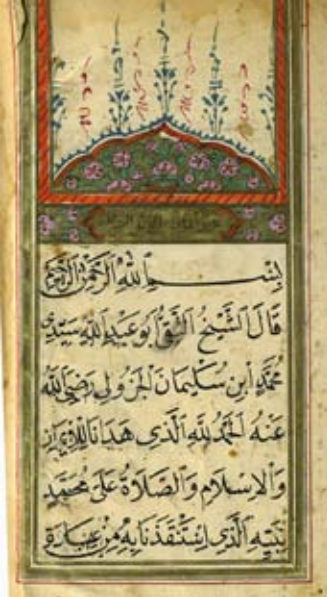 بِسْمِ اللهِ الرَّحْمٰنِ الرَّحِيمِ
قَالَ الشَّيْخُ التَّقِيُّ أَبُو عَبْدِ اللهِ سَيِّدِي
مُحَمَّدِ ابْنِ سُلَيْمَانَ الْجَزُولِي رَضِيَ اللهُ
عَنْهُ الْحَمْدُ لِلّٰهِ الَّذِي هَدَانَا لِلْإِيمَانِ
وَالْإِسْلَامِ وَالصَّلَاةُ عَلَى مُحَمَّدٍ
نَبِيِّهِ الَّذِي اسْتَنْقَذَنَا بِهِ مِنْ عِبَادَةِ